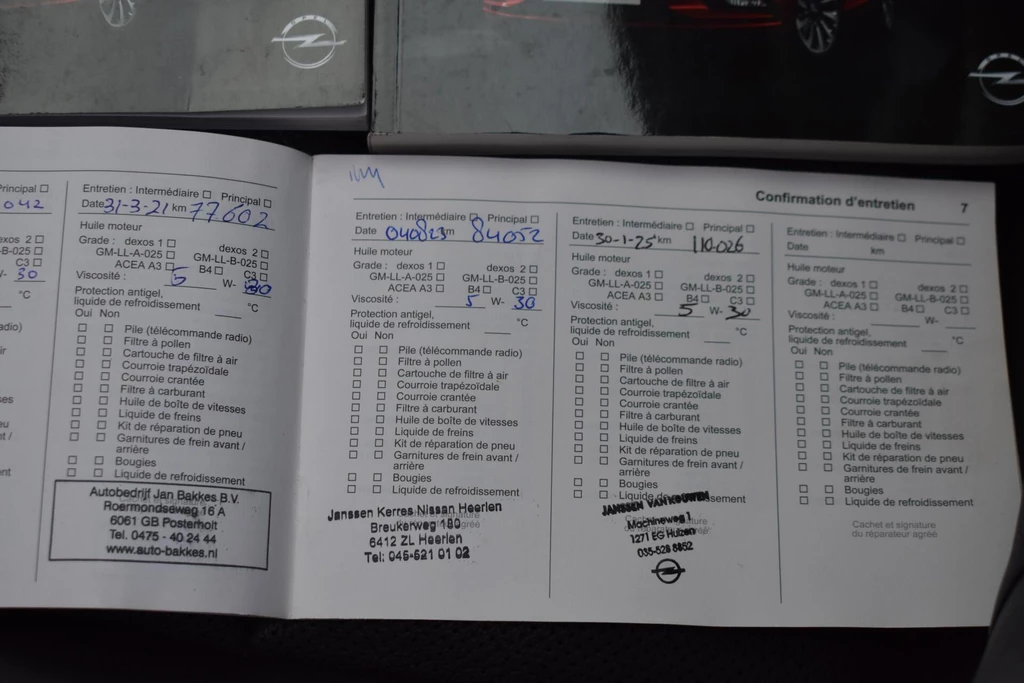 OPEL
Principal ☐
042
dexos 2 ☐
GM-LL-B-025 ☐
C3 ☐
W- 30
°C
Entretien : Intermédiaire ☐ Principal ☐
Date 31-3-21 km 77602
Huile moteur
Grade : dexos 1 ☐ dexos 2 ☐
GM-LL-A-025 ☐ GM-LL-B-025 ☐
ACEA A3 ☐ B4 ☐ C3 ☐
Viscosité : 5 W- 30
Protection antigel,
liquide de refroidissement °C
Oui Non
☐ ☐ Pile (télécommande radio)
☐ ☐ Filtre à pollen
☐ ☐ Cartouche de filtre à air
☐ ☐ Courroie trapézoïdale
☐ ☐ Courroie crantée
☐ ☐ Filtre à carburant
☐ ☐ Huile de boîte de vitesses
☐ ☐ Liquide de freins
☐ ☐ Kit de réparation de pneu
☐ ☐ Garnitures de frein avant /
arrière
☐ ☐ Bougies
☐ ☐ Liquide de refroidissement
Autobedrijf Jan Bakkes B.V.
Roermondseweg 16 A
6061 GB Posterholt
Tel. 0475 - 40 24 44
www.auto-bakkes.nl
Confirmation d'entretien 7
Entretien : Intermédiaire ☐ Principal ☐
Date 040823 km 84052
Huile moteur
Grade : dexos 1 ☐ dexos 2 ☐
GM-LL-A-025 ☐ GM-LL-B-025 ☐
ACEA A3 ☐ B4 ☐ C3 ☐
Viscosité : 5 W- 30
Protection antigel,
liquide de refroidissement °C
Oui Non
☐ ☐ Pile (télécommande radio)
☐ ☐ Filtre à pollen
☐ ☐ Cartouche de filtre à air
☐ ☐ Courroie trapézoïdale
☐ ☐ Courroie crantée
☐ ☐ Filtre à carburant
☐ ☐ Huile de boîte de vitesses
☐ ☐ Liquide de freins
☐ ☐ Kit de réparation de pneu
☐ ☐ Garnitures de frein avant /
arrière
☐ ☐ Bougies
☐ ☐ Liquide de refroidissement
Janssen Kerres Nissan Heerlen
Breukerweg 180
6412 ZL Heerlen
Tel: 045-521 01 02
Entretien : Intermédiaire ☐ Principal ☐
Date 30-1-25 km 110026
Huile moteur
Grade : dexos 1 ☐ dexos 2 ☐
GM-LL-A-025 ☐ GM-LL-B-025 ☐
ACEA A3 ☐ B4 ☐ C3 ☐
Viscosité : 5 W- 30
Protection antigel,
liquide de refroidissement °C
Oui Non
☐ ☐ Pile (télécommande radio)
☐ ☐ Filtre à pollen
☐ ☐ Cartouche de filtre à air
☐ ☐ Courroie trapézoïdale
☐ ☐ Courroie crantée
☐ ☐ Filtre à carburant
☐ ☐ Huile de boîte de vitesses
☐ ☐ Liquide de freins
☐ ☐ Kit de réparation de pneu
☐ ☐ Garnitures de frein avant /
arrière
☐ ☐ Bougies
☐ ☐ Liquide de refroidissement
JANSSEN VAN KOUWEN
Machineweg 1
1271 EG Huizen
035-528 8852
Entretien : Intermédiaire ☐ Principal ☐
Date km
Huile moteur
Grade : dexos 1 ☐ dexos 2 ☐
GM-LL-A-025 ☐ GM-LL-B-025 ☐
ACEA A3 ☐ B4 ☐ C3 ☐
Viscosité : W-
Protection antigel,
liquide de refroidissement °C
Oui Non
☐ ☐ Pile (télécommande radio)
☐ ☐ Filtre à pollen
☐ ☐ Cartouche de filtre à air
☐ ☐ Courroie trapézoïdale
☐ ☐ Courroie crantée
☐ ☐ Filtre à carburant
☐ ☐ Huile de boîte de vitesses
☐ ☐ Liquide de freins
☐ ☐ Kit de réparation de pneu
☐ ☐ Garnitures de frein avant /
arrière
☐ ☐ Bougies
☐ ☐ Liquide de refroidissement
Cachet et signature
du réparateur agréé